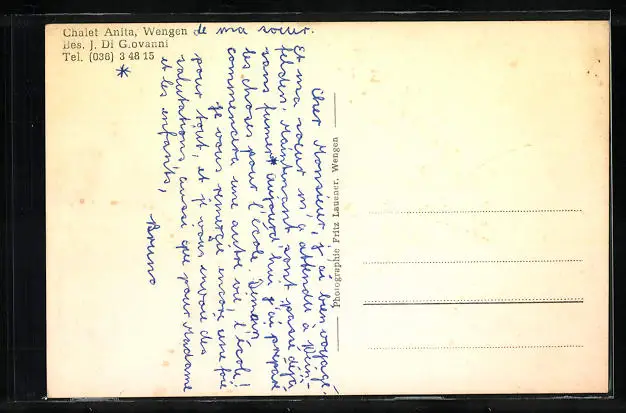 Chalet Anita, Wengen
Bes. J. Di Giovanni
Tel. (036) 3 48 15
*
de ma sœur.
Cher Monsieur, j'ai bien voyagé.
Et ma sœur m'a attendu à Rhein-
felden. Maintenant sont passé déjà
sans fumer* aujourd'hui j'ai préparé
les choses pour l'école. Demain
commencera une autre vie, l'école!
Je vous remercie encore une fois
pour tout, et je vous envoie des
salutations, aussi que pour Madame
et les enfants,
Bruno
Photographie Fritz Lauener, Wengen